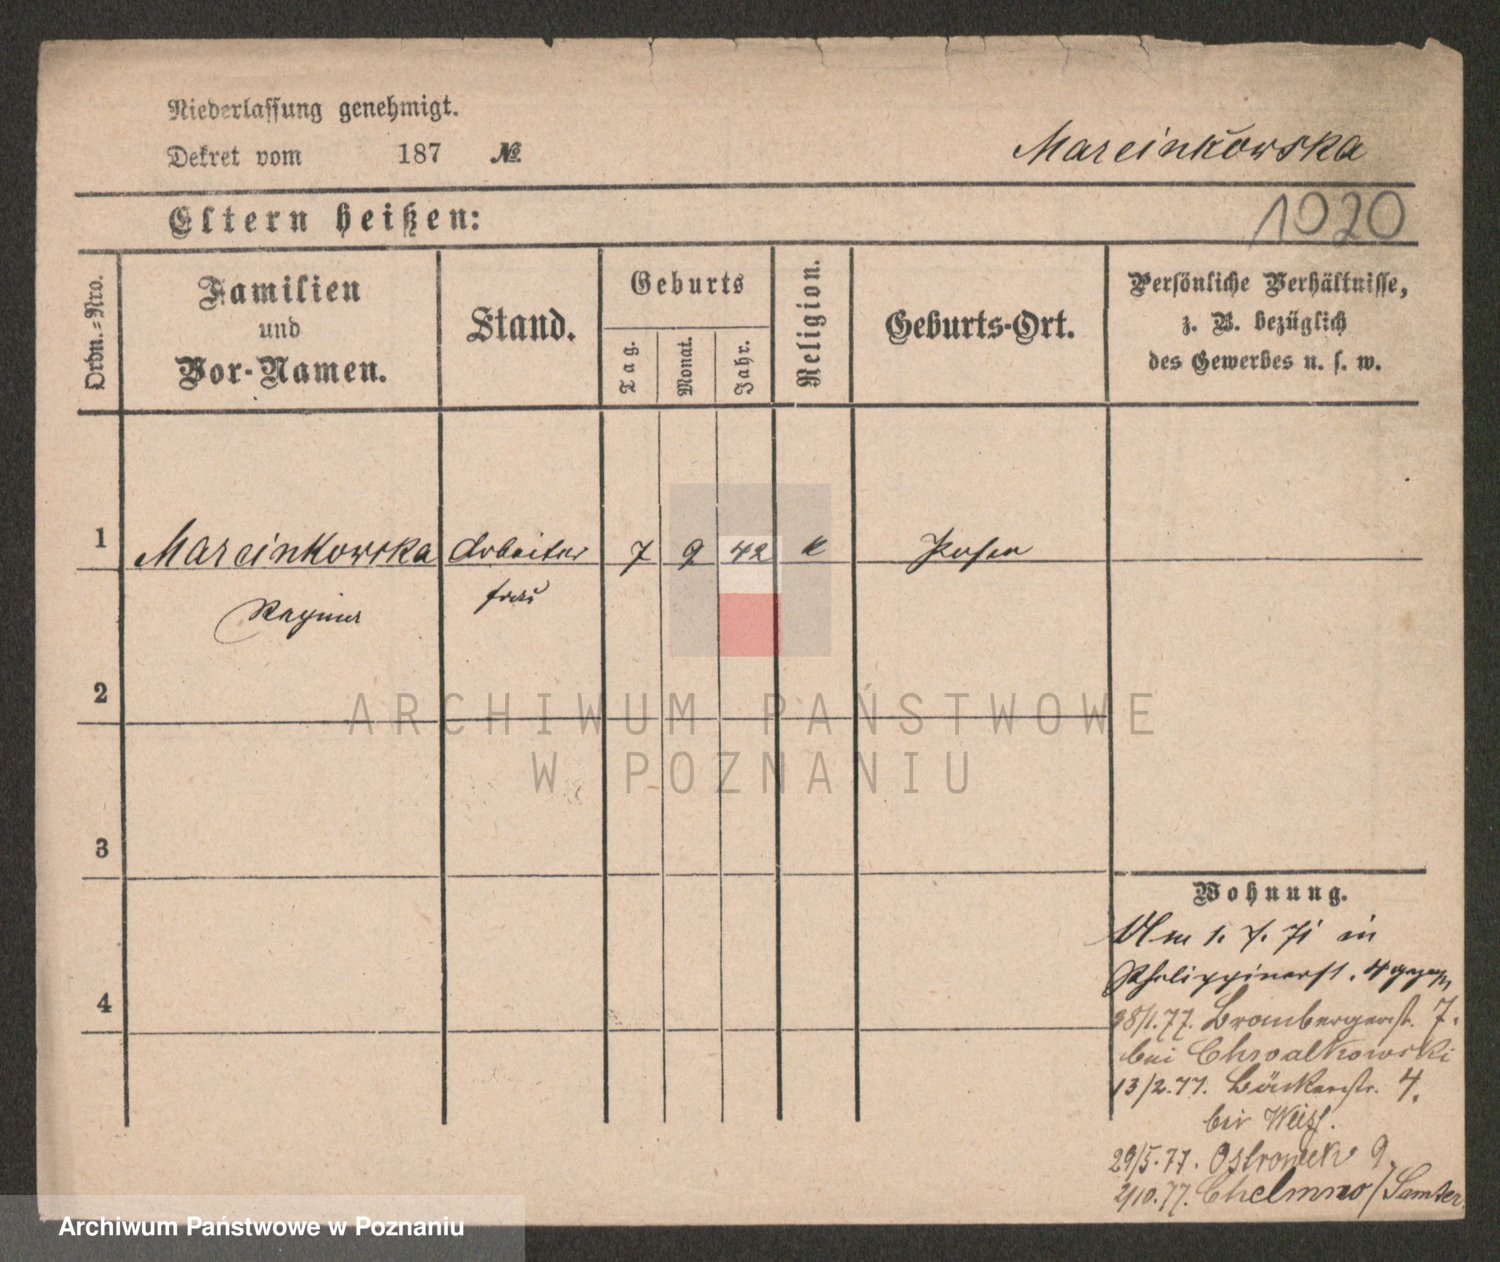 Niederlassung genehmigt.
Dekret vom 187 №
Marcinkowska
1020
Eltern heißen:
Ordn.-Nro.
Familien
und
Vor-Namen.
Stand.
Geburts
Tag.
Monat.
Jahr.
Religion.
Geburts-Ort.
Persönliche Verhältnisse,
z. B. bezüglich
des Gewerbes u. s. w.
1 Marcinkowska Arbeiter 7 9 42 k Posen
frau
2
ARCHIWUM PAŃSTWOWE
W POZNANIU
3
Wohnung.
Am 1. 7. 71 in
4
Philippinerst. 4
28/1.77. Brombergerstr. 7.
bei Chwalkowski
13/2.77. Bäckerstr. 4.
bei Weiss.
29/5.77. Ostrowek 9
2/10.77. Chelmno / Samter
Archiwum Państwowe w Poznaniu